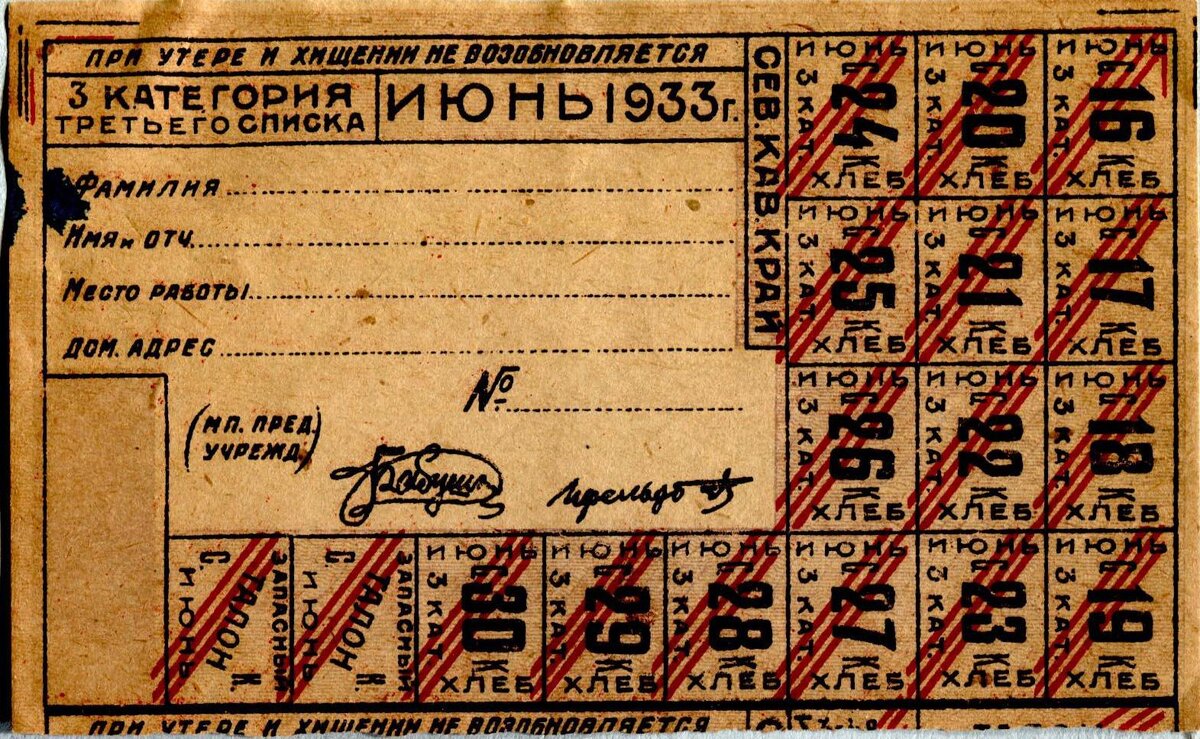 ПРИ УТЕРЕ И ХИЩЕНИИ НЕ ВОЗОБНОВЛЯЕТСЯ
3 КАТЕГОРИЯ
ТРЕТЬЕГО СПИСКА
ИЮНЬ 1933 г.
СЕВ. КАВ. КРАЙ
Фамилия
Имя и отч.
Место работы
Дом. адрес
№
(М.П. ПРЕД.
УЧРЕЖД.)
ИЮНЬ 3 КАТ. С 24 К ХЛЕБ
ИЮНЬ 3 КАТ. С 20 К ХЛЕБ
ИЮНЬ 3 КАТ. С 16 К ХЛЕБ
ИЮНЬ 3 КАТ. С 25 К ХЛЕБ
ИЮНЬ 3 КАТ. С 21 К ХЛЕБ
ИЮНЬ 3 КАТ. С 17 К ХЛЕБ
ИЮНЬ 3 КАТ. С 26 К ХЛЕБ
ИЮНЬ 3 КАТ. С 22 К ХЛЕБ
ИЮНЬ 3 КАТ. С 18 К ХЛЕБ
С. ИЮНЬ ТАЛОН ЗАПАСНЫЙ К.
С. ИЮНЬ ТАЛОН ЗАПАСНЫЙ К.
ИЮНЬ 3 КАТ. С 30 К ХЛЕБ
ИЮНЬ 3 КАТ. С 29 К ХЛЕБ
ИЮНЬ 3 КАТ. С 28 К ХЛЕБ
ИЮНЬ 3 КАТ. С 27 К ХЛЕБ
ИЮНЬ 3 КАТ. С 23 К ХЛЕБ
ИЮНЬ 3 КАТ. С 19 К ХЛЕБ
ПРИ УТЕРЕ И ХИЩЕНИИ НЕ ВОЗОБНОВЛЯЕТСЯ